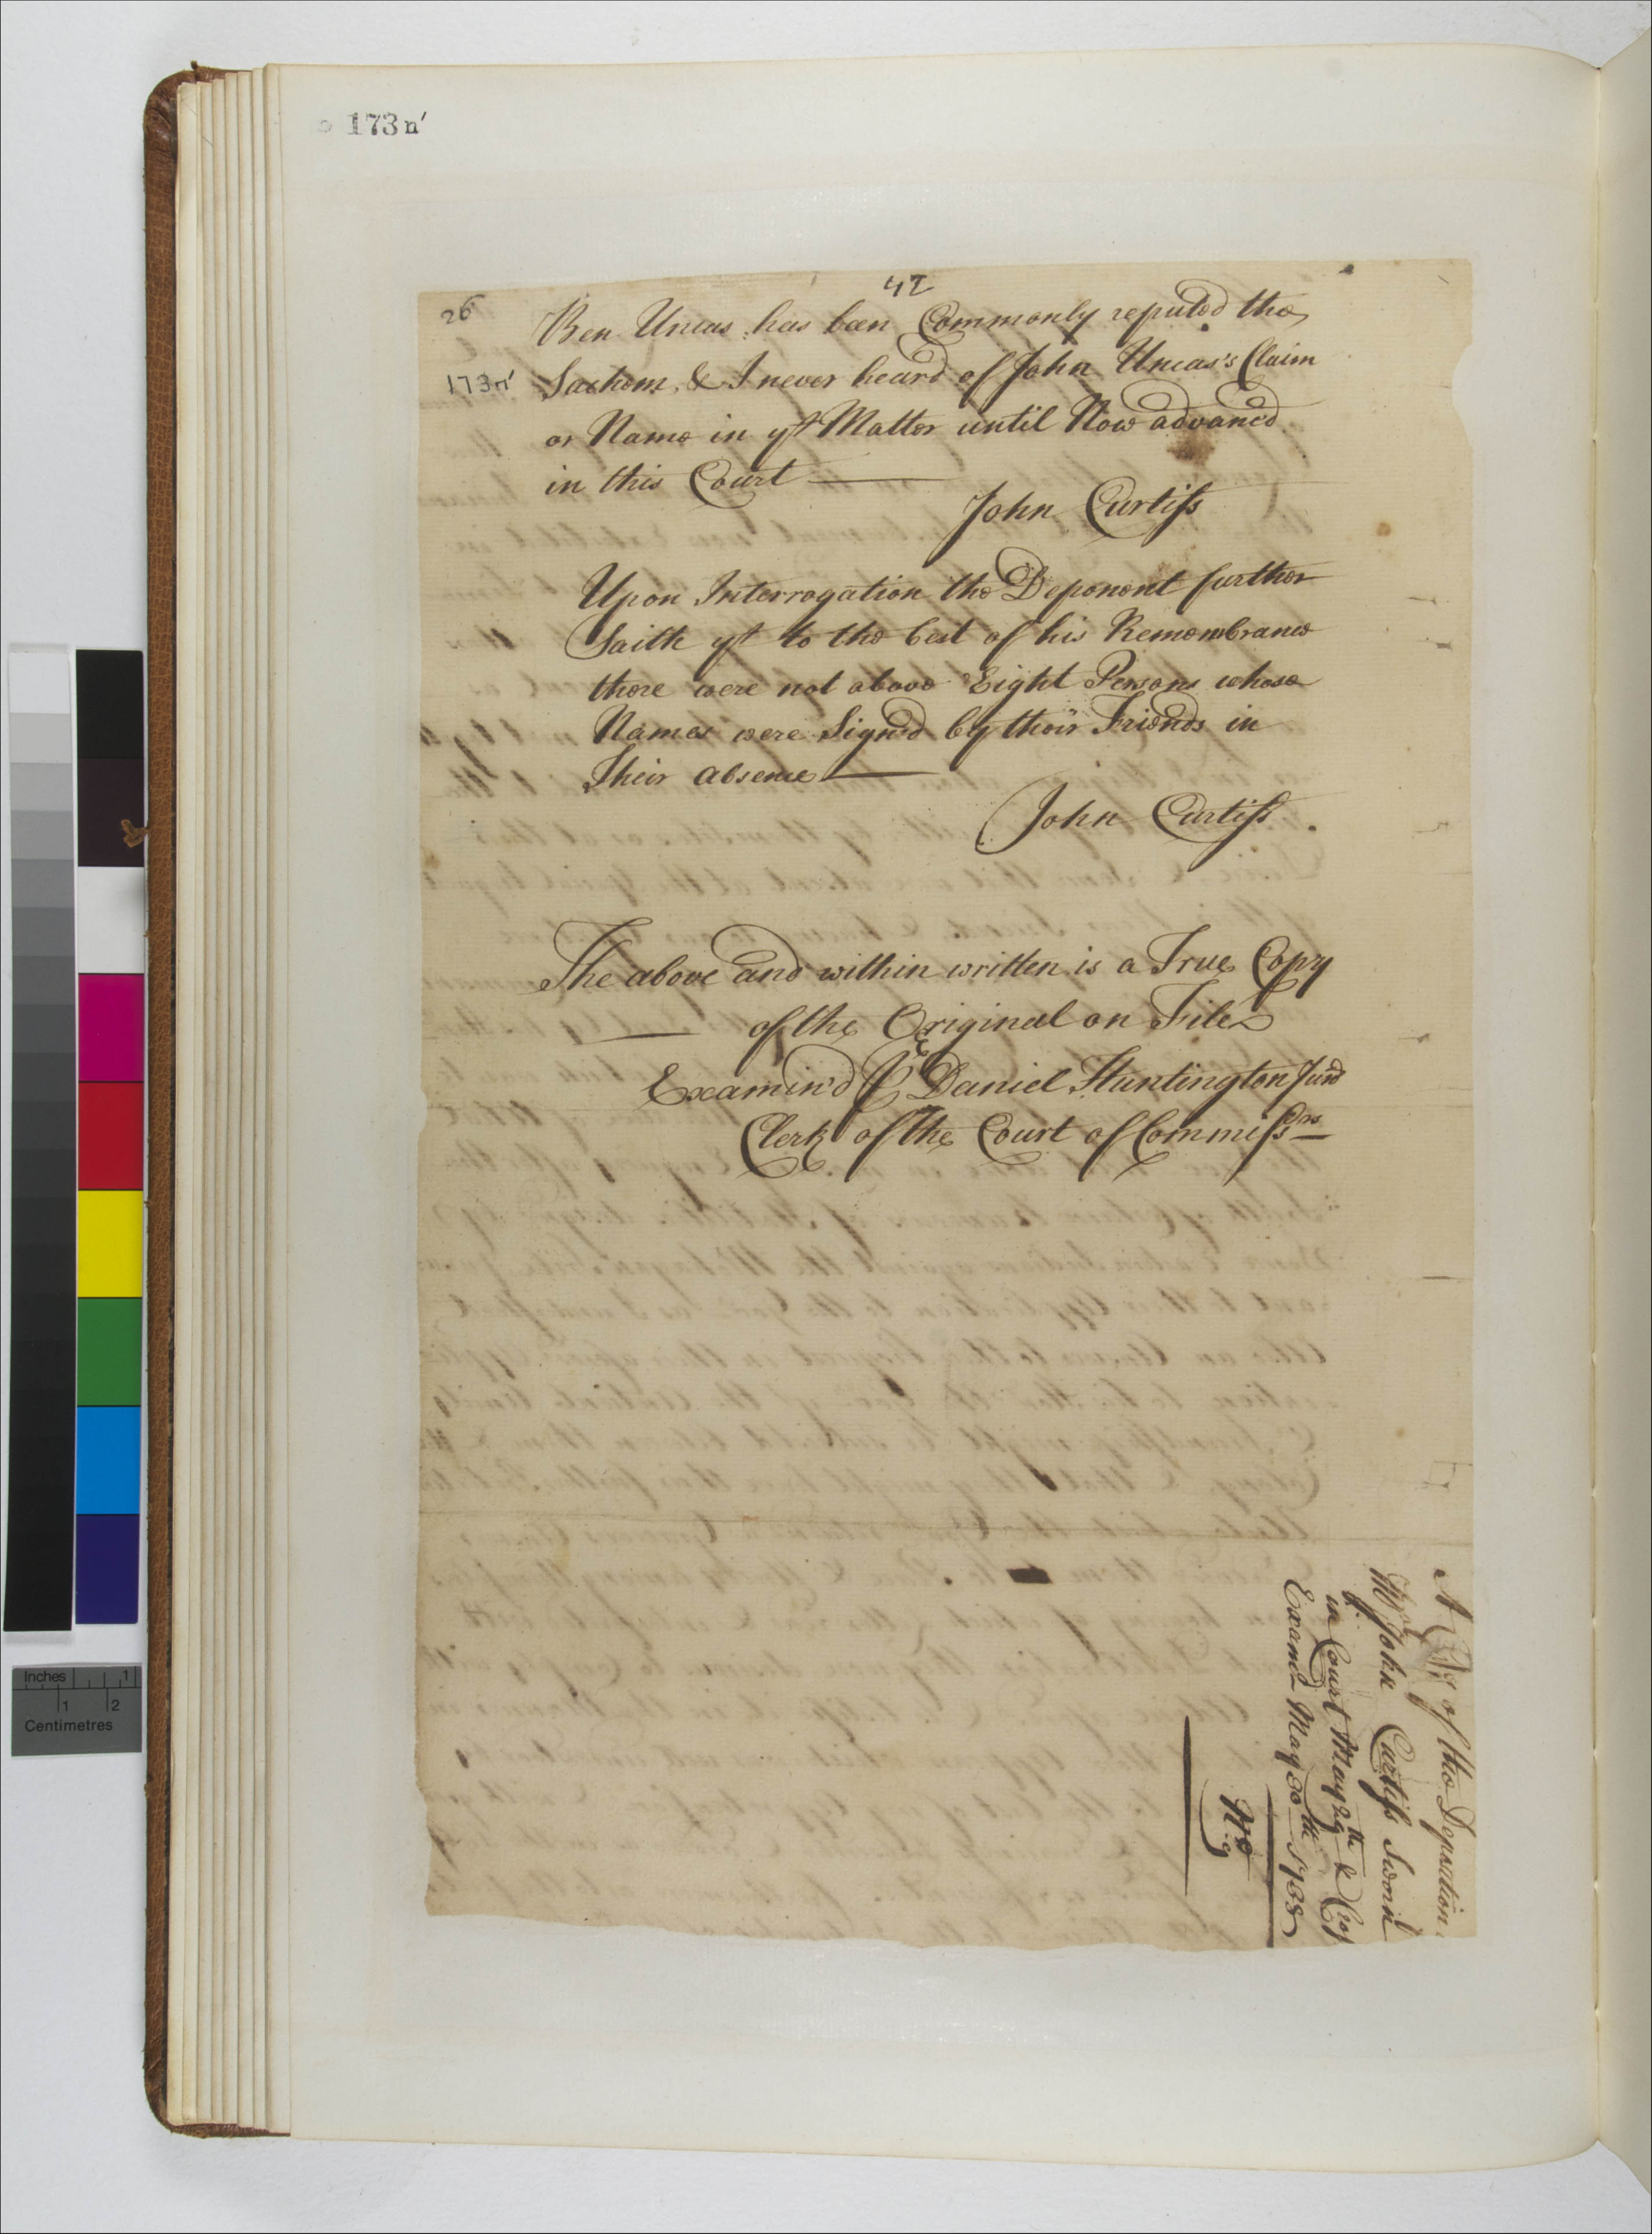 173n'
42
26
173n'
Ben Uncas has been Commonly reputed the
Sachem, & I never heard of John Uncas's Claim
or Name in yt Matter until Now advanc'd
in this Court
John Curtiss
Upon Interrogation the Deponent further
Saith yt to the best of his Remembrance
there were not above Eight Persons whose
Names were Sign'd by their Friends in
Their absence
John Curtiss
The above and within written is a True Copy
of the Original on File
Examin'd Pr Daniel Huntington Junr
Clerk of the Court of Commissrs
A Copy of the Deposition
of John Curtiss Sworn
in Court May 29th & Cross
Examd May 30th 1738
No
9
Inches
1
1
2
Centimetres